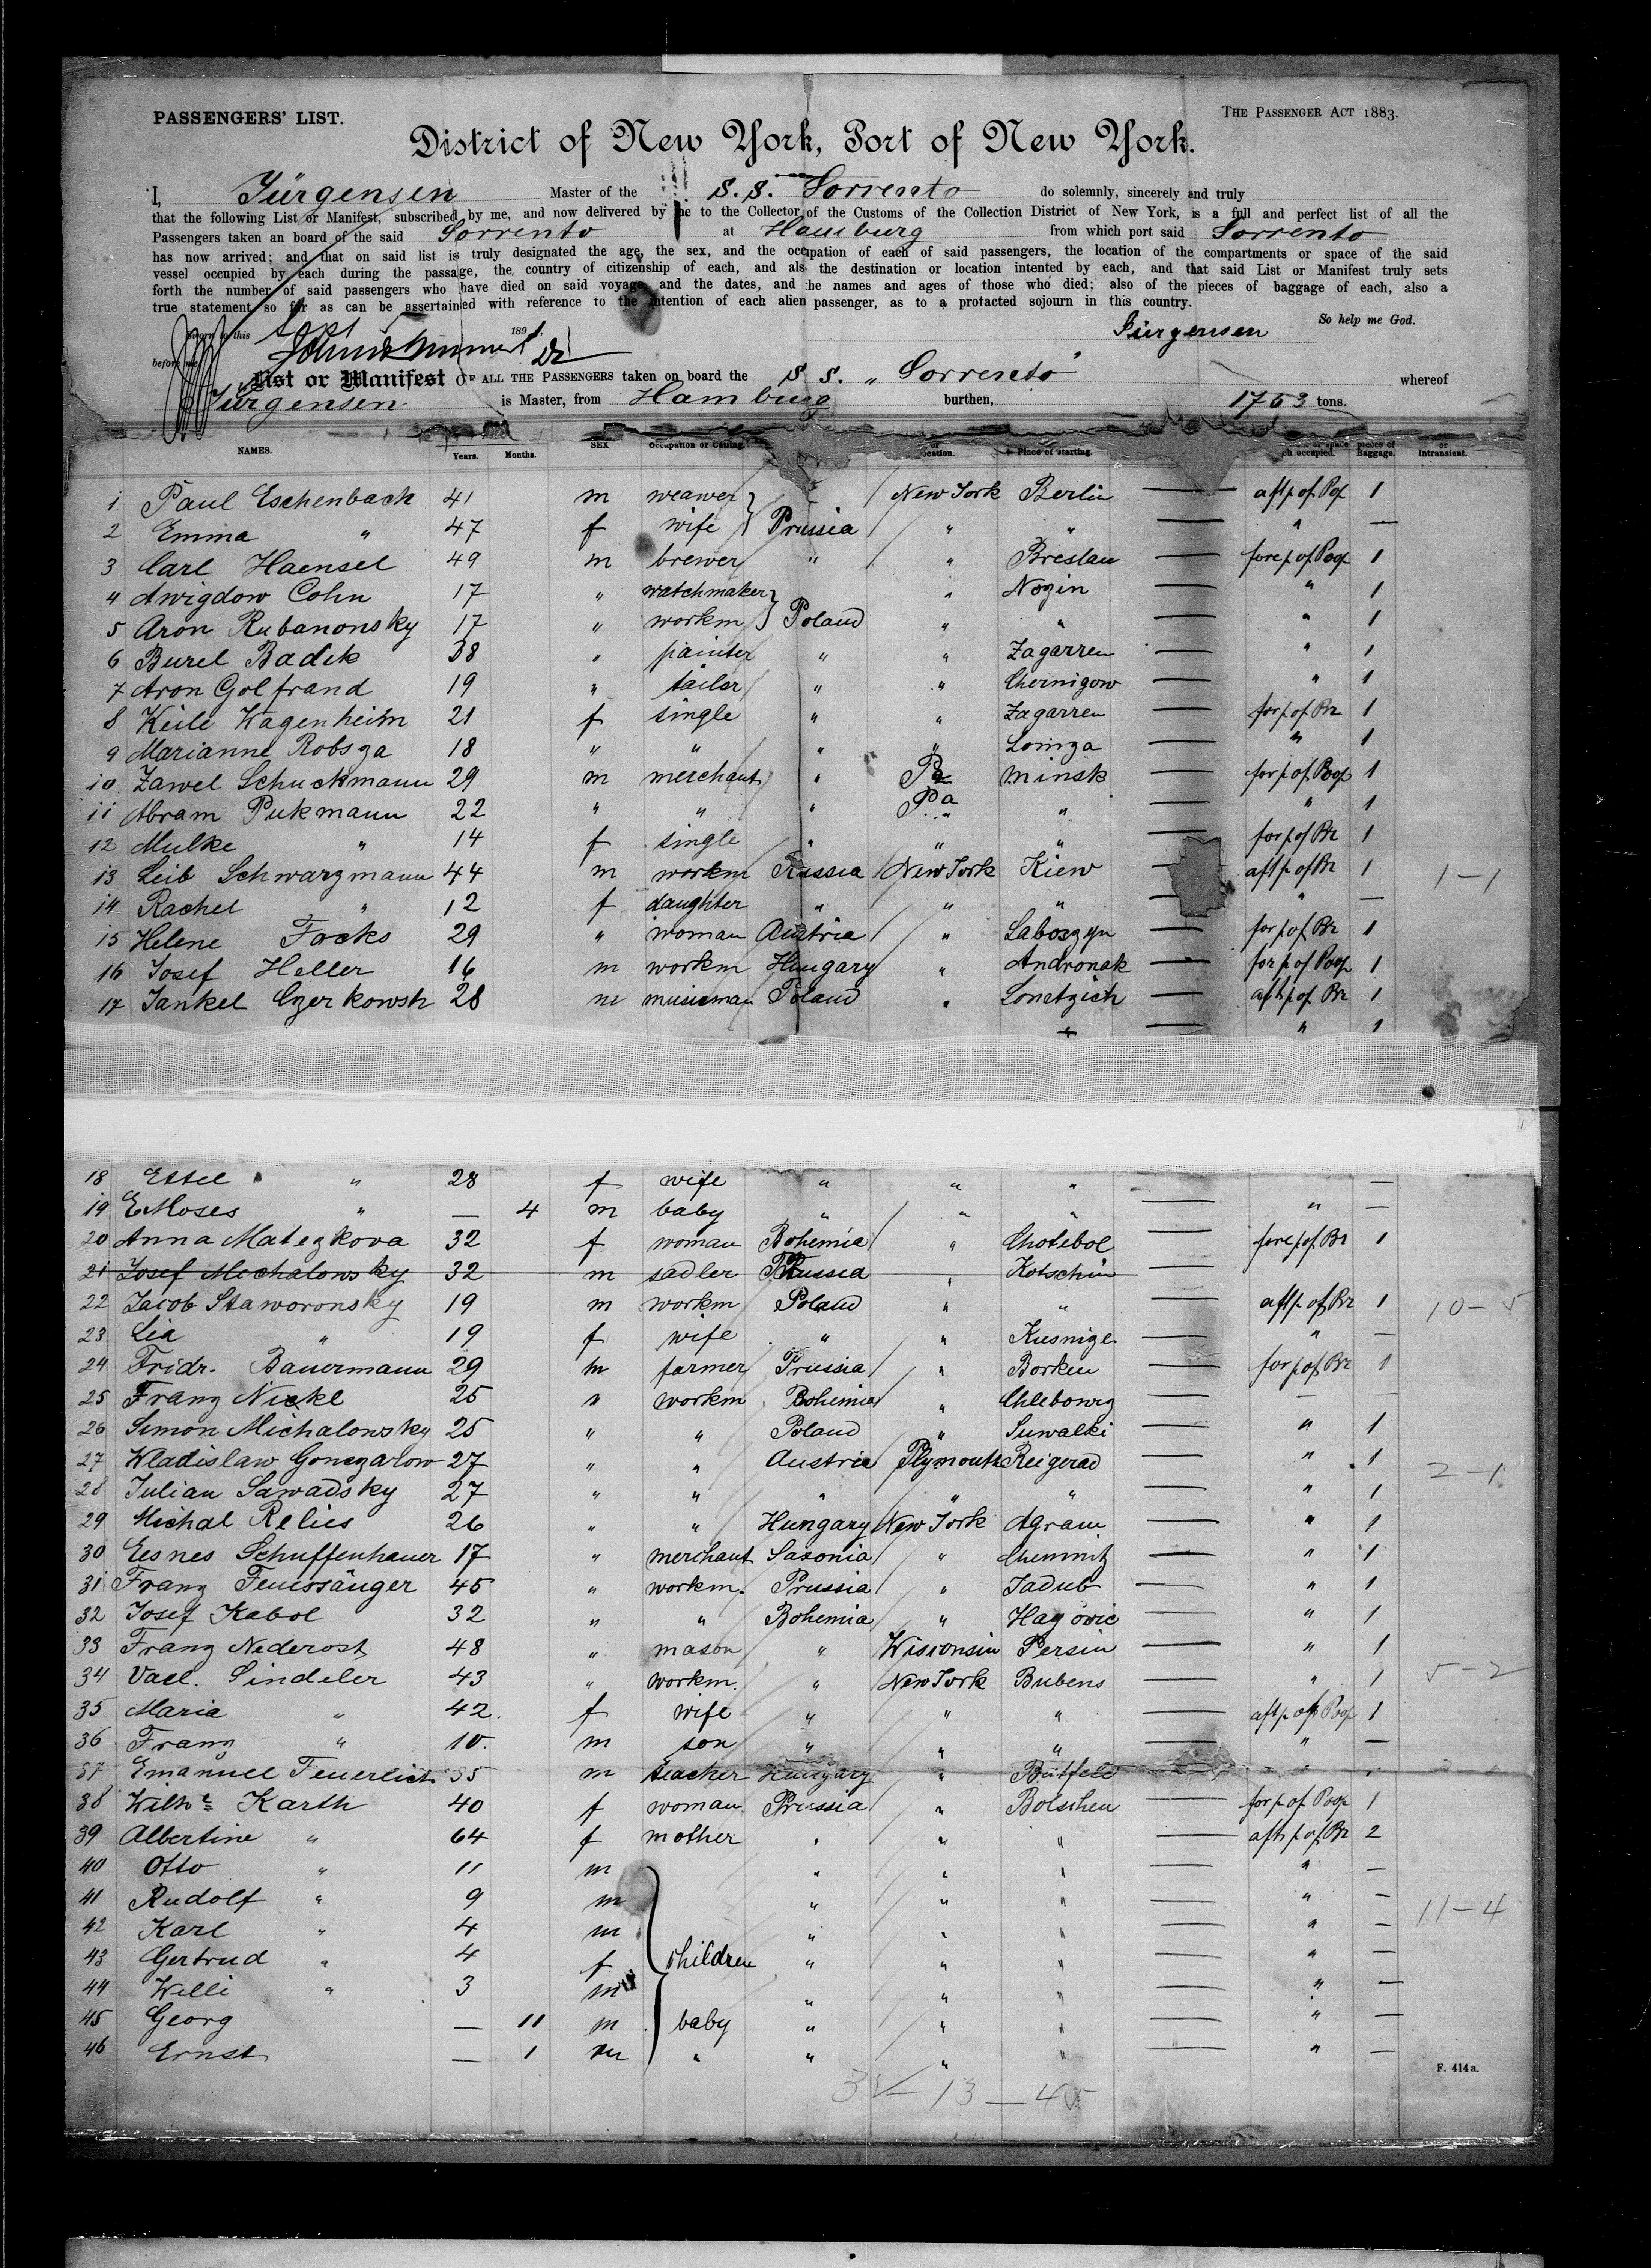 PASSENGERS' LIST.
THE PASSENGER ACT 1883.
District of New York, Port of New York.
I, Jürgensen Master of the S.S. Sorrento do solemnly, sincerely and truly
that the following List or Manifest, subscribed by me, and now delivered by me to the Collector of the Customs of the Collection District of New York, is a full and perfect list of all the
Passengers taken an board of the said Sorrento at Hamburg from which port said Sorrento
has now arrived; and that on said list is truly designated the age, the sex, and the occupation of each of said passengers, the location of the compartments or space of the said
vessel occupied by each during the passage, the country of citizenship of each, and als the destination or location intented by each, and that said List or Manifest truly sets
forth the number of said passengers who have died on said voyage and the dates, and the names and ages of those who died; also of the pieces of baggage of each, also a
true statement so far as can be ascertained with reference to the intention of each alien passenger, as to a protacted sojourn in this country.
So help me God.
Sworn to this Sept 1891 Jürgensen
before me
List or Manifest OF ALL THE PASSENGERS taken on board the S S. „ Sorrento" whereof
Jürgensen is Master, from Hamburg burthen, 1753 tons.
NAMES. Years. Months. SEX Occupation or Calling. Place of starting. space occupied. pieces of Baggage. or Intransient.
1 Paul Eschenbach 41 m weawer New York Berlin — aft p of Pop 1
2 Emma " 47 f wife Prussia " " — " —
3 Carl Haensel 49 m brewer " " Breslau — fore p of Poop 1
4 Awigdow Cohn 17 " watchmaker " Nozin — " 1
5 Aron Rubanonsky 17 " workm Poland " " — " 1
6 Burel Badek 38 " painter " " Zagarren — " 1
7 Aron Golfrand 19 " tailor " " Chernigow — " 1
8 Keile Wagenheim 21 f single " " Zagarren — for p of Br 1
9 Marianne Robsza 18 " " " " Lomza — " 1
10 Zawel Schuckmann 29 m merchant " Pa Minsk — for p of Poop 1
11 Abram Pukmann 22 " " " Pa " — " 1
12 Mulke " 14 f single " " " — for p of Br 1
13 Leib Schwarzmann 44 m workm Russia New York Kiew — aft p of Br 1 1-1
14 Rachel " 12 f daughter " " " — " —
15 Helene Focks 29 " woman Austria " Laboszyn — for p of Br 1
16 Josef Heller 16 m workm Hungary " Andronak — for p of Poop 1
17 Jankel Czerkowsk 28 m musicman Poland " Lonatzich — aft p of Br 1
— " 1
18 Estel " 28 f wife " " " —
19 Moses " — 4 m baby " " — " —
20 Anna Matezkova 32 f woman Bohemia " Chotebol — fore p of Br 1
21 Josef Michalowsky 32 m sadler Russia " Kotschin
22 Jacob Staworonsky 19 m workm Poland " " — aft p of Br 1 10-5
23 Lia " 19 f wife " " Kusnize — " —
24 Fridr. Bauermann 29 m farmer Prussia " Borken — for p of Br 1
25 Franz Nickl 25 " workm Bohemia " Chlebourg — — —
26 Simon Michalowsky 25 " " Poland " Suwalki — " 1
27 Wladislaw Gonczarow 27 " " Austria Plymouth Reigerad — " 1 2-1
28 Julian Sawadsky 27 " " " " " — " 1
29 Michal Relics 26 " " Hungary New York Agram — " 1
30 Eesnes Schuffenhauer 17 " merchant Saxonia " Chemnitz — " 1
31 Franz Feuissänger 45 " workm. Prussia " Jadub — " 1
32 Josef Kabol 32 " " Bohemia " Hagovic — " 1
33 Franz Nederost 48 " mason " Wisconsin Persin — " 1
34 Vacl. Sindeler 43 " workm. " New York Bubens — " 1 5-2
35 Maria " 42. f wife " " " — aft p of Poop 1
36 Franz " 10. m son " " " — " —
37 Emanuel Feuerlich 35 m teacher Hungary " — "
38 Wilhe Karth 40 f woman Prussia " Bolschen — for p of Poop 1
39 Albertine " 64 f mother " " " — aft p of Br 2
40 Otto " 11 m " " " — " —
41 Rudolf " 9 m " " " — " —
42 Karl " 4 m " " " — " —
43 Gertrud " 4 f children " " " — " —
44 Willi " 3 m " " " — " —
45 Georg — 11 m baby " " " — " —
46 Ernst — 1 m " " " " — " —
11-4
13 — 45
F. 414a.